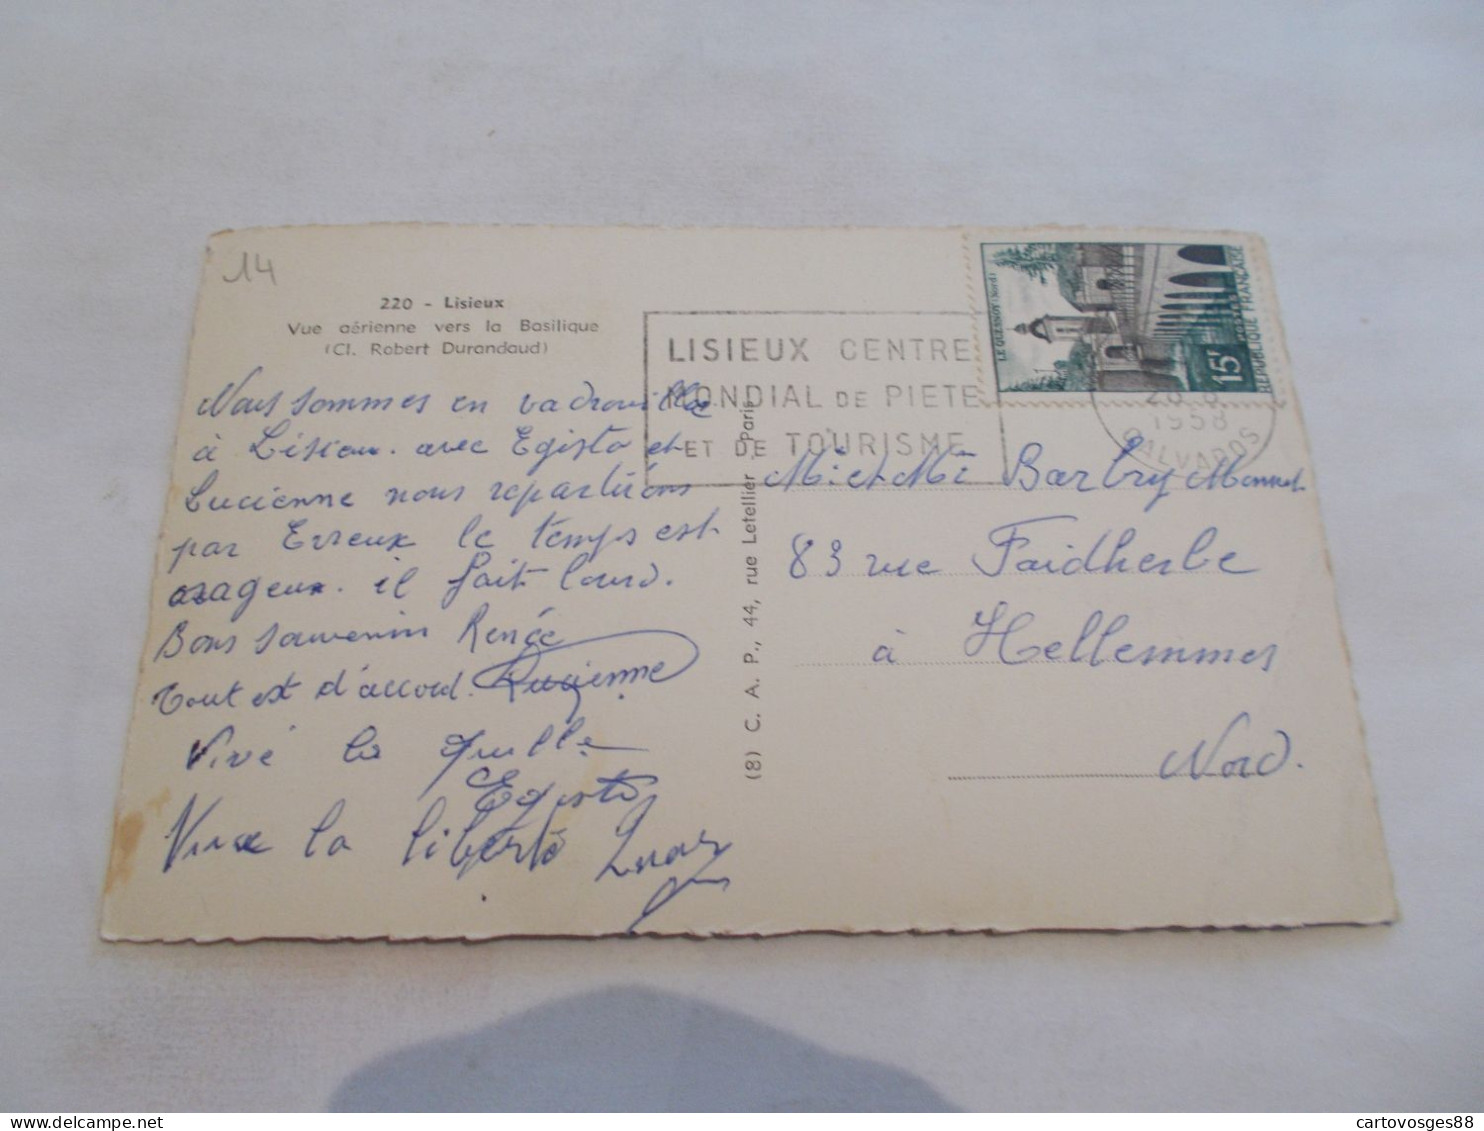 14
220 - Lisieux
Vue aérienne vers la Basilique
(Cl. Robert Durandaud)
Nous sommes en vadrouille
à Lisieux. avec Egisto et
Lucienne nous repartirons
par Evreux le temps est
orageux. il fait lourd.
Bons souvenirs Renée
Tout est d'accord. Lucienne
Vive la quille
Egisto
Vive la liberté
LISIEUX CENTRE
MONDIAL DE PIETE
ET DE TOURISME
LE QUESNOY (Nord)
15F
REPUBLIQUE FRANÇAISE
1958
CALVADOS
(8) C. A. P., 44, rue Letellier - Paris
Mr et Me Barbry Monnet
83 rue Faidherbe
à Hellemmes
Nord.
cartovosges88